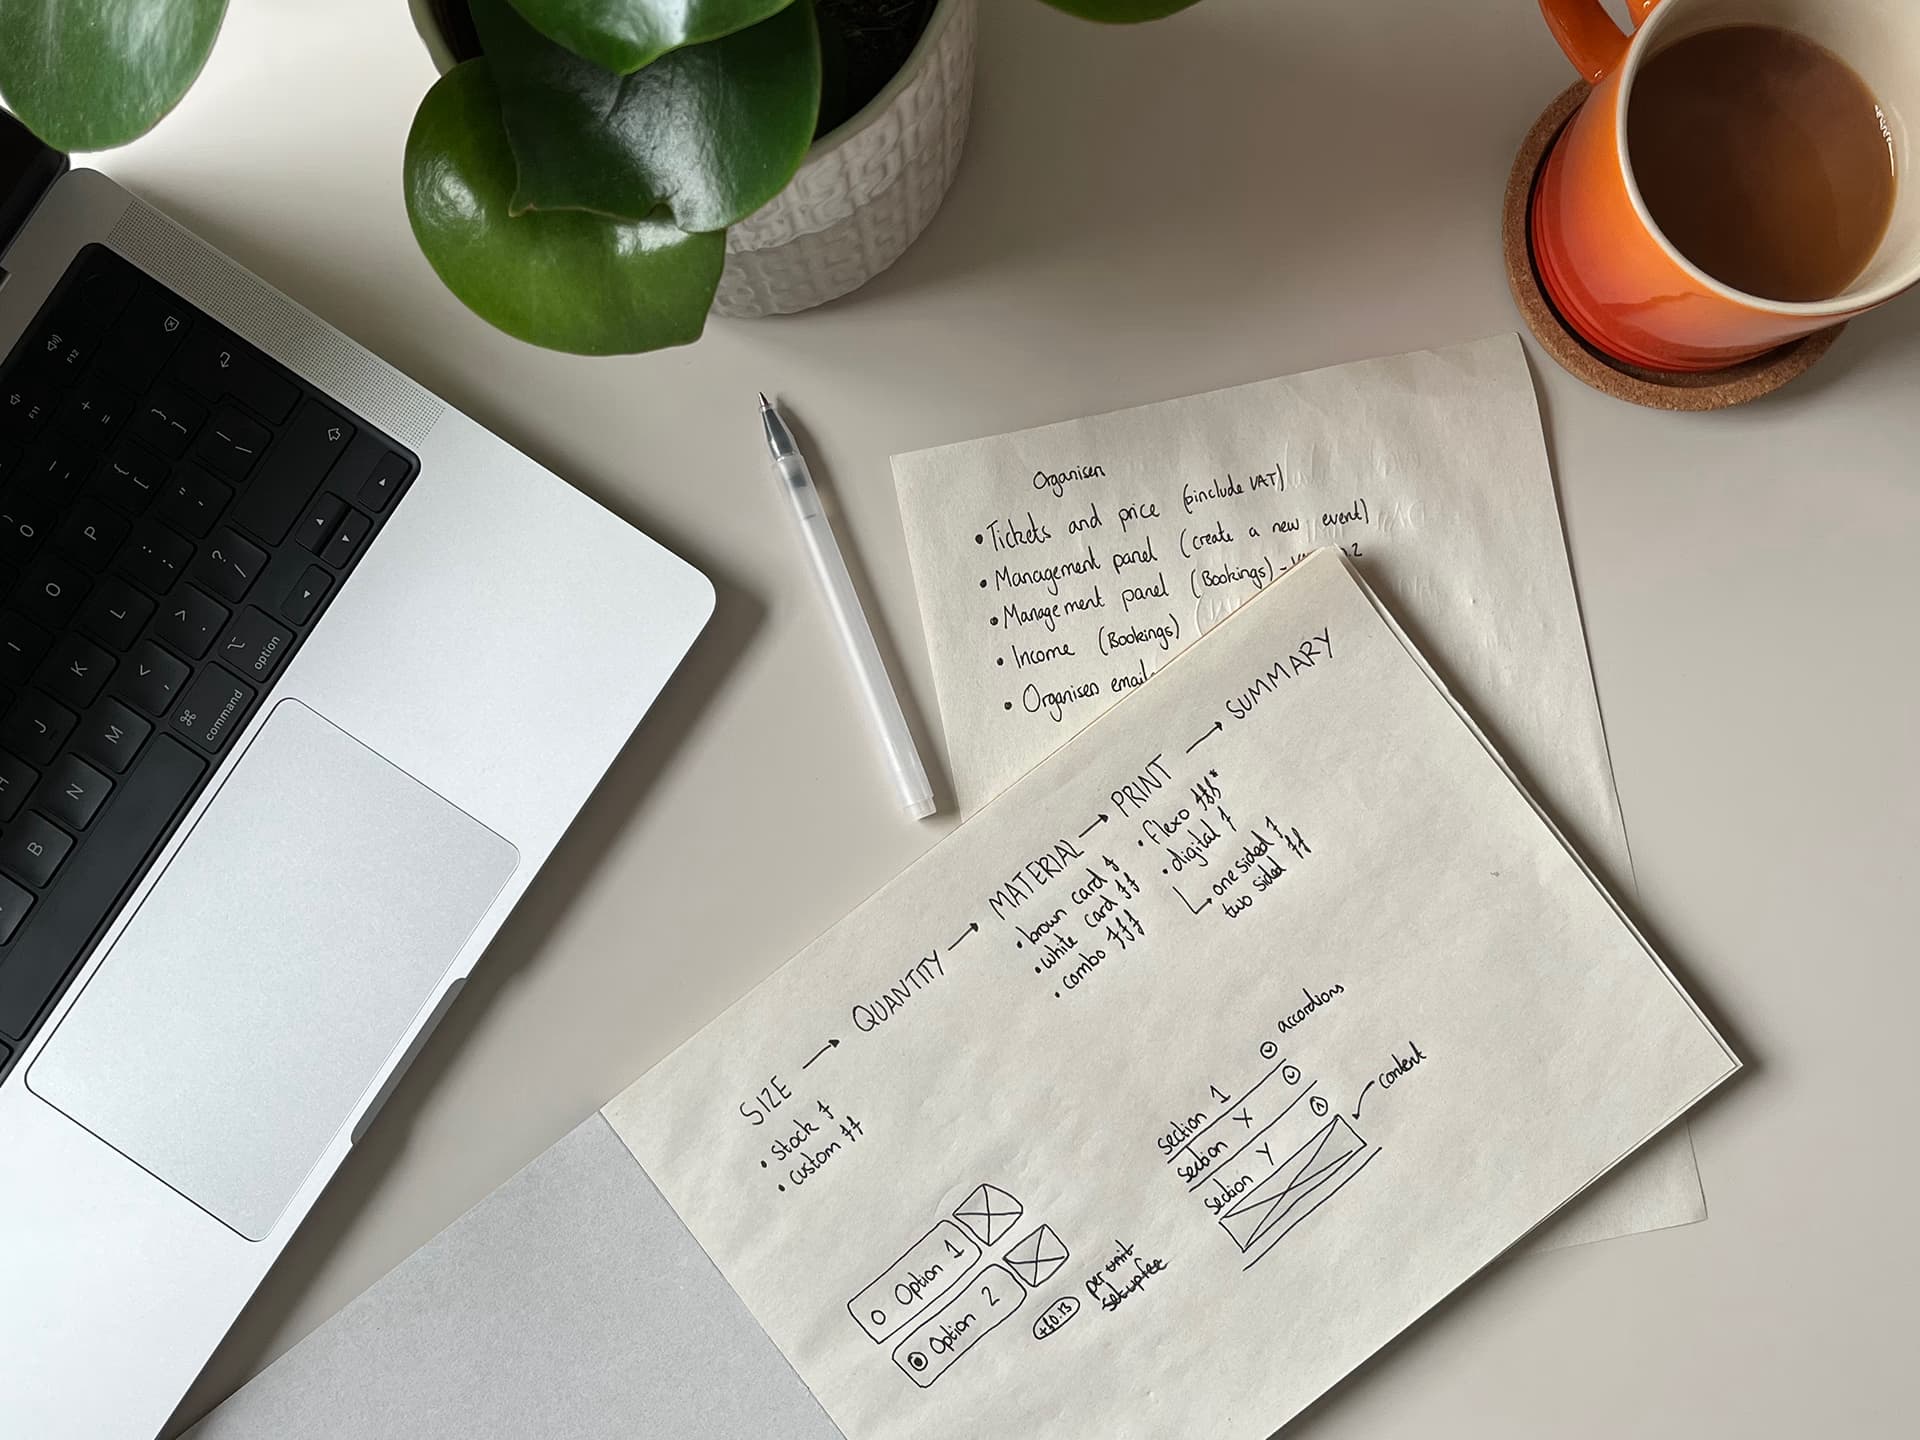 Organiser
• Tickets and price (include VAT)
• Management panel (create a new event)
• Management panel (Bookings) -
• Income (Bookings)
• Organiser email
SIZE → QUANTITY → MATERIAL → PRINT → SUMMARY
• Stock £
• custom ££
• brown card £
• white card ££
• combo £££
• flexo £££*
• digital £
one sided £
two sided ££
Option 1
Option 2
+£0.13
per unit
setup fee
accordions
section 1
section X
section Y
content
F12
F11
+ =
} ]
{ [
| \
_ -
" '
: ;
? /
> .
< ,
P
O
L
K
J
M
N
B
H
I
option
command